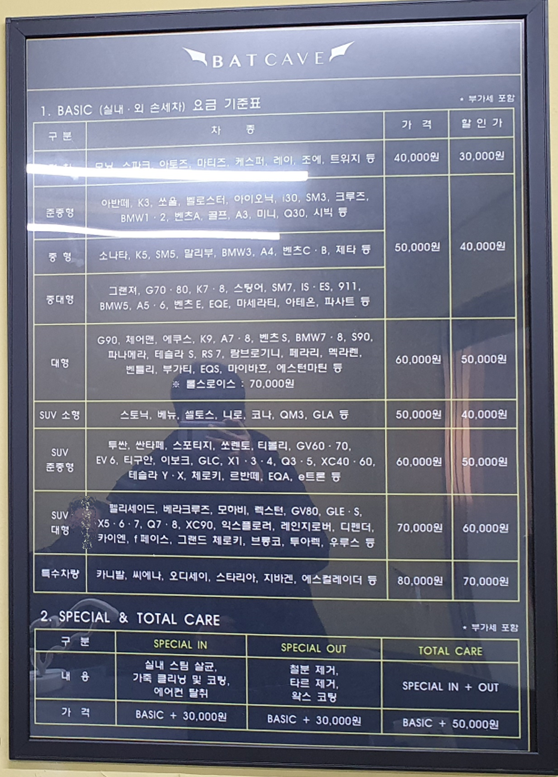 BATCAVE
1. BASIC (실내 · 외 손세차) 요금 기준표
* 부가세 포함
구 분 차 종 가 격 할 인 가
모닝, 스파크, 아토즈, 마티즈, 케스퍼, 레이, 조에, 트위지 등 40,000원 30,000원
준중형
아반떼, K3, 쏘울, 벨로스터, 아이오닉, i30, SM3, 크루즈,
BMW1 · 2, 벤츠A, 골프, A3, 미니, Q30, 시빅 등
중 형 소나타, K5, SM5, 말리부, BMW3, A4, 벤츠C · B, 제타 등 50,000원 40,000원
중대형
그랜저, G70 · 80, K7 · 8, 스팅어, SM7, IS · ES, 911,
BMW5, A5 · 6, 벤츠E, EQE, 마세라티, 아테온, 파사트 등
대형
G90, 체어맨, 에쿠스, K9, A7 · 8, 벤츠S, BMW7 · 8, S90,
파나메라, 테슬라 S, RS 7, 람보르기니, 페라리, 멕라렌,
벤틀리, 부가티, EQS, 마이바흐, 에스턴마틴 등
※ 롤스로이스 : 70,000원
60,000원 50,000원
SUV 소형 스토닉, 베뉴, 셀토스, 니로, 코나, QM3, GLA 등 50,000원 40,000원
SUV
준중형
투싼, 싼타페, 스포티지, 쏘렌토, 티볼리, GV60 · 70,
EV 6, 티구안, 이보크, GLC, X1 · 3 · 4, Q3 · 5, XC40 · 60,
테슬라 Y · X, 체로키, 르반떼, EQA, e트론 등
60,000원 50,000원
SUV
대형
펠리세이드, 베라크루즈, 모하비, 렉스턴, GV80, GLE · S,
X5 · 6 · 7, Q7 · 8, XC90, 익스플로러, 레인지로버, 디펜더,
카이엔, f 페이스, 그랜드 체로키, 브롱코, 투아렉, 우루스 등
70,000원 60,000원
특수차량 카니발, 씨에나, 오디세이, 스타리아, 지바겐, 에스컬레이더 등 80,000원 70,000원
2. SPECIAL & TOTAL CARE
* 부가세 포함
구 분 SPECIAL IN SPECIAL OUT TOTAL CARE
내 용
실내 스팀 살균,
가죽 클리닝 및 코팅,
에어컨 탈취
철분 제거,
타르 제거,
왁스 코팅
SPECIAL IN + OUT
가 격 BASIC + 30,000원 BASIC + 30,000원 BASIC + 50,000원